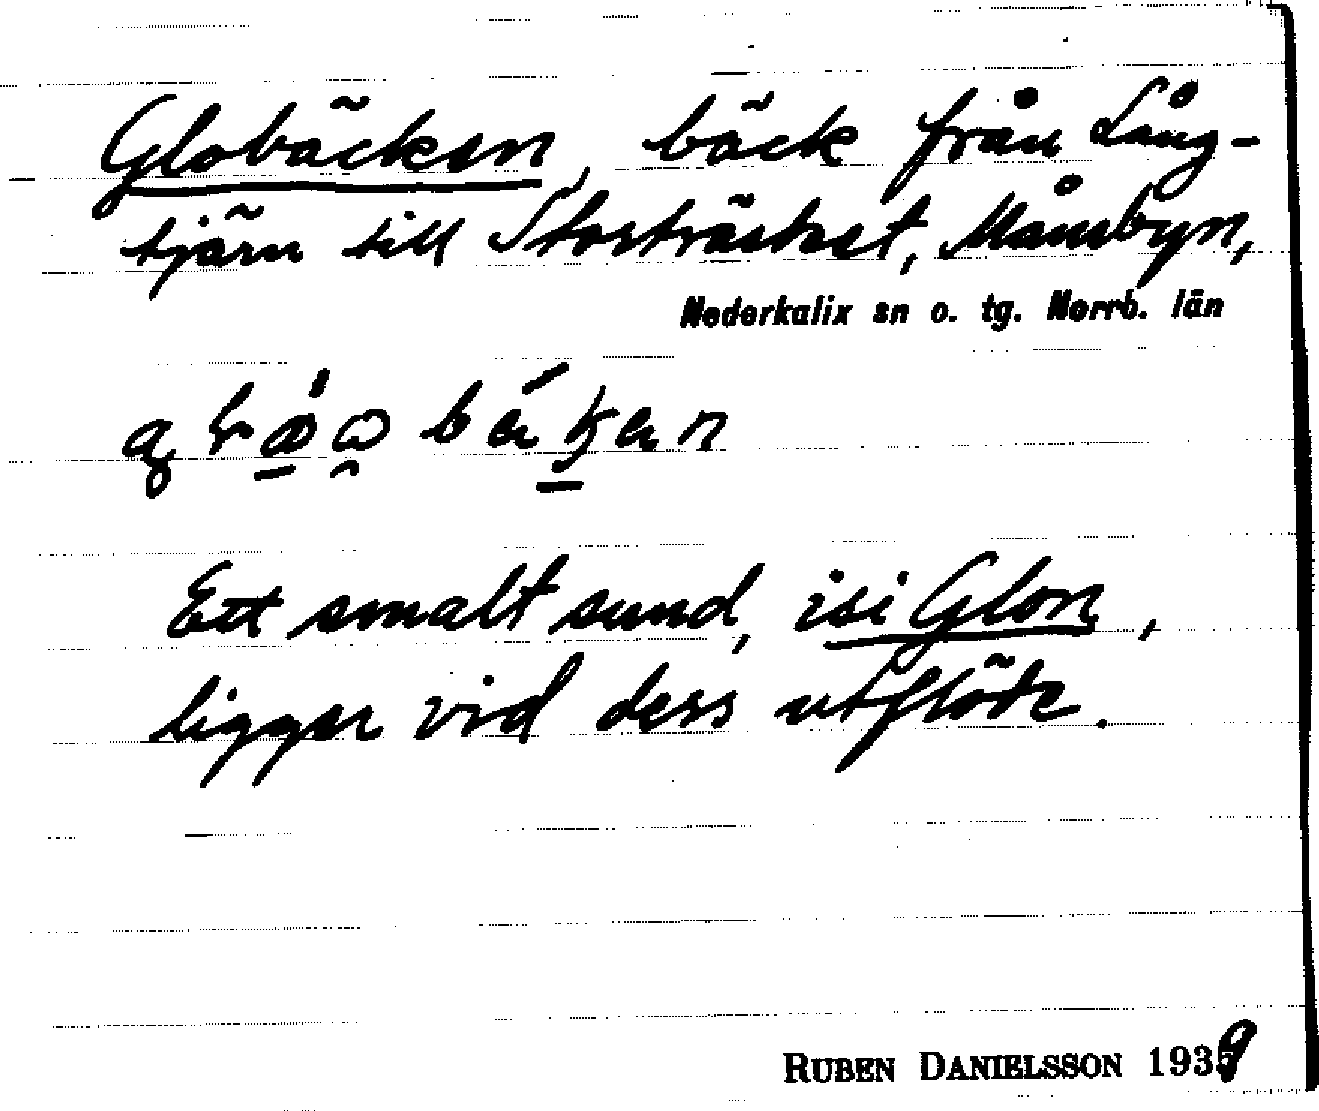 Globäcken, bäck från Lång-
tjärn till Storträsket, Månsbyn,
Nederkalix sn o. tg. Norrb. län
Ett smalt sund, isi Glon,
ligger vid dess utflöde.
RUBEN DANIELSSON 1939